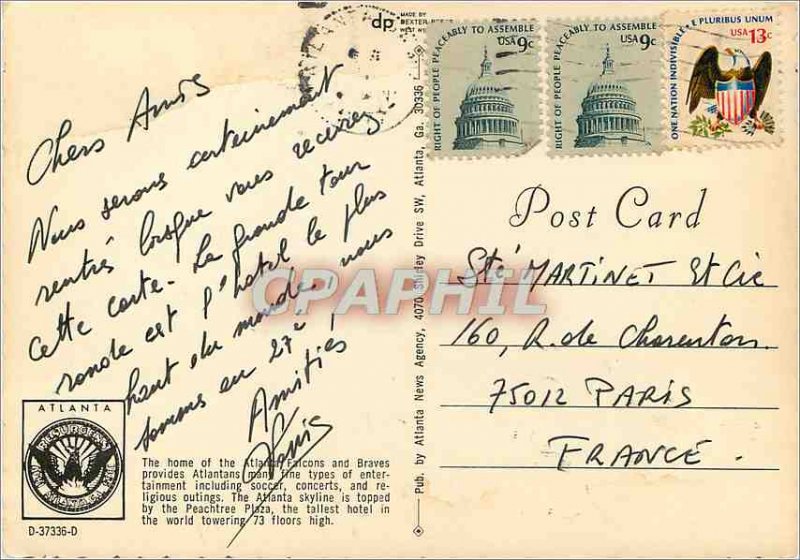 dp
MADE BY
DEXTER PRESS
WEST
RIGHT OF PEOPLE PEACEABLY TO ASSEMBLE
USA 9c
RIGHT OF PEOPLE PEACEABLY TO ASSEMBLE
USA 9c
ONE NATION INDIVISIBLE
E PLURIBUS UNUM
USA 13c
Chers Amis
Nous serons certainement
rentrés lorsque vous recevrez
cette carte. La grande tour
ronde est l'hotel le plus
haut du monde, nous
sommes au 27e !
Amitiés
Post Card
Sté MARTINET et Cie
160, R. de Charenton
75012 PARIS
FRANCE.
CPAPHIL
Pub. by Atlanta News Agency, 4070 Shirley Drive SW, Atlanta, Ga. 30336
ATLANTA
RESURGENS
The home of the Atlanta Falcons and Braves
provides Atlantans many fine types of enter-
tainment including soccer, concerts, and re-
ligious outings. The Atlanta skyline is topped
by the Peachtree Plaza, the tallest hotel in
the world towering 73 floors high.
D-37336-D